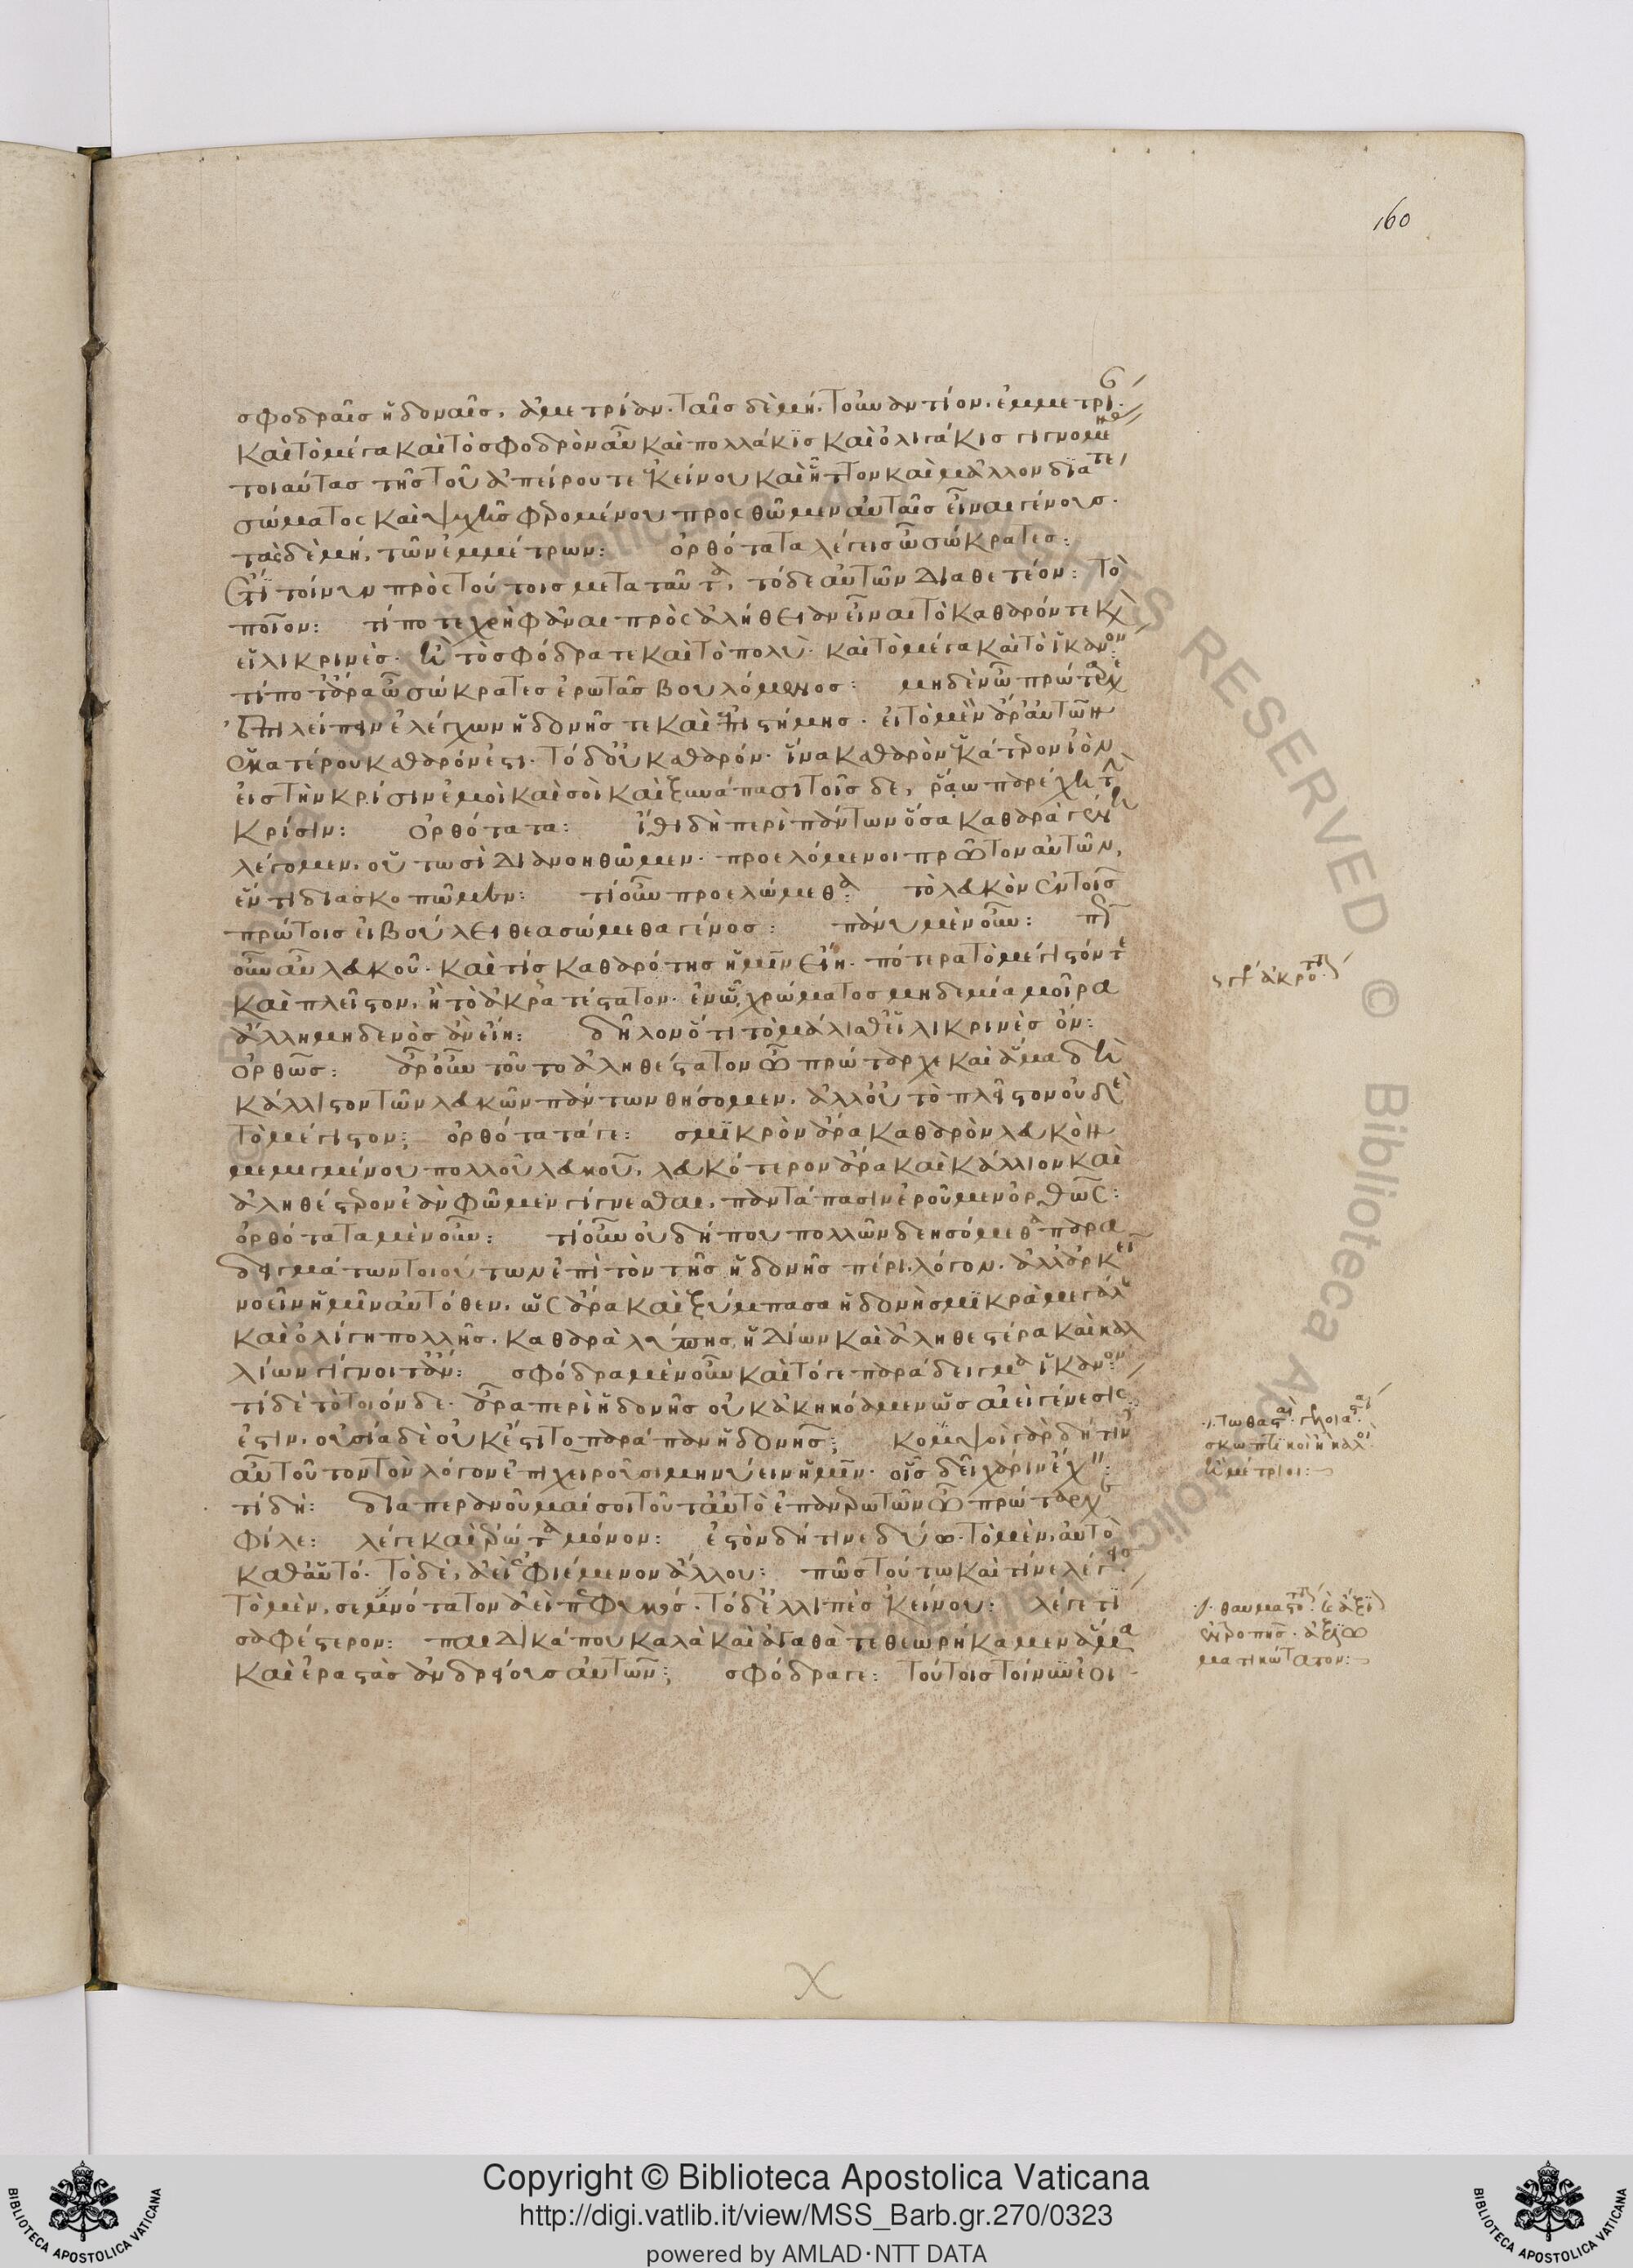 160
σφοδραῖς ἡδοναῖς, ἀμετρίαν. ταῖς δὲ μή, τοὐναντίον, ἐμμετρί.
καὶ τὸ μέγα καὶ τὸ σφοδρὸν αὖ καὶ πολλάκις καὶ ὀλιγάκις γιγνομένας
τοιαύτας τῆς τοῦ ἀπείρου τε ἐκείνου καὶ ἧττον καὶ μᾶλλον διά τε
σώματος καὶ ψυχῆς φερομένου προσθῶμεν αὐταῖς εἶναι γένους.
τὰς δὲ μή, τῶν ἐμμέτρων: ὀρθότατα λέγεις ὦ σώκρατες:
ἔτι τοίνυν πρὸς τούτοις μετὰ ταῦτα, τόδε αὐτῶν διαθετέον: τὸ
ποῖον: τί ποτε χρὴ φάναι πρὸς ἀλήθειαν εἶναι τὸ καθαρόν τε καὶ
εἰλικρινὲς. ἢ τὸ σφόδρα τε καὶ τὸ πολὺ. καὶ τὸ μέγα καὶ τὸ ἱκανόν:
τί ποτ' ἄρα ὦ σώκρατες ἐρωτᾶς βουλόμενος: μηδὲν ὦ πρώταρχε
ἐπιλείπειν ἐλέγχων ἡδονῆς τε καὶ ἐπιστήμης. εἰ τὸ μὲν ἄρ' αὐτῶν
ἑκατέρου καθαρόν ἐστι. τὸ δ' οὐ καθαρόν. ἵνα καθαρὸν ἑκάτερον ἰὸν
εἰς τὴν κρίσιν ἐμοὶ καὶ σοὶ καὶ ξυνάπασι τοῖσδε, ῥάω παρέχῃ τὴν
κρίσιν: ὀρθότατα: ἴθι δὴ περὶ πάντων ὅσα καθαρὰ γένη
λέγομεν, οὑτωσὶ διανοηθῶμεν. προελόμενοι πρῶτον αὐτῶν,
ἕν τι διασκοπῶμεν: τί οὖν προελώμεθα: τὸ λευκὸν ἐν τοῖς
πρώτοις εἰ βούλει θεασώμεθα γένος: πάνυ μὲν οὖν: πῶς
οὖν ἂν λευκοῦ. καὶ τίς καθαρότης ἡμῖν εἴη. πότερα τὸ μέγιστόν τε
καὶ πλεῖστον, ἢ τὸ ἀκρατέστατον. ἐν ᾧ χρώματος μηδεμία μοῖρα
ἄλλη μηδενὸς ἂν εἴη: δῆλον ὅτι τὸ μάλισθ' εἰλικρινὲς ὄν:
ὀρθῶς: ἆρ' οὖν τοῦτο ἀληθέστατον ὦ πρώταρχε καὶ ἅμα δὴ
κάλλιστον τῶν λευκῶν πάντων θήσομεν, ἀλλ' οὐ τὸ πλεῖστον οὐδὲ
τὸ μέγιστον; ὀρθότατά γε: σμικρὸν ἄρα καθαρὸν λευκὸν
μεμιγμένου πολλοῦ λευκοῦ, λευκότερον ἄρα καὶ κάλλιον καὶ
ἀληθέστερον ἐὰν φῶμεν γίγνεσθαι, παντάπασιν ἐροῦμεν ὀρθῶς:
ὀρθότατα μὲν οὖν: τί οὖν οὐ δή που πολλῶν δεησόμεθα παρα
δειγμάτων τοιούτων ἐπὶ τὸν τῆς ἡδονῆς πέρι λόγον. ἀλλ' ἀρκεῖ
νοεῖν ἡμῖν αὐτόθεν, ὡς ἄρα καὶ ξύμπασα ἡδονὴ σμικρὰ μεγάλη
καὶ ὀλίγη πολλῆς, καθαρὰ λύπης, ἡδίων καὶ ἀληθεστέρα καὶ καλ
λίων γίγνοιτ' ἄν: σφόδρα μὲν οὖν καὶ τό γε παράδειγμα ἱκανόν:
τί δὲ τὸ τοιόνδε. ἆρα περὶ ἡδονῆς οὐκ ἀκηκόαμεν ὡς ἀεὶ γένεσις
ἐστιν. οὐσία δὲ οὐκ ἔστι τὸ παράπαν ἡδονῆς; κομψοὶ γὰρ δή τινες
αὖ τοῦτον τὸν λόγον ἐπιχειροῦσι μηνύειν ἡμῖν. οἷς δεῖ χάριν ἔχειν:
τί δή: διαπερανοῦμαί σοι τοῦτ' αὐτὸ ἐπανερωτῶν ὦ πρώταρχε
φίλε: λέγε καὶ ἐρώτα μόνον: ἐστὸν δή τινε δύο. τὸ μὲν, αὐτὸ
καθ' αὑτό. τὸ δὲ, ἀεὶ ἐφιέμενον ἄλλου: πῶς τούτω καὶ τίνε λέγεις.
τὸ μὲν, σεμνότατον ἀεὶ πεφυκός. τὸ δ' ἐλλιπὲς ἐκείνου: λέγε τι
σαφέστερον: παιδικά που καλὰ καὶ ἀγαθὰ τεθεωρήκαμεν ἅμα
καὶ ἐραστὰς ἀνδρείους αὐτῶν; σφόδρα γε: τούτοις τοίνυν ἐοι
σκωπτικοὶ ἢ καλοί.
εὐμέτριοι:
εὐπρεπής. ἀξιω
ματικώτατον:
Copyright © Biblioteca Apostolica Vaticana
http://digi.vatlib.it/view/MSS_Barb.gr.270/0323
powered by AMLAD·NTT DATA
BIBLIOTECA APOSTOLICA VATICANA
BIBLIOTECA APOSTOLICA VATICANA